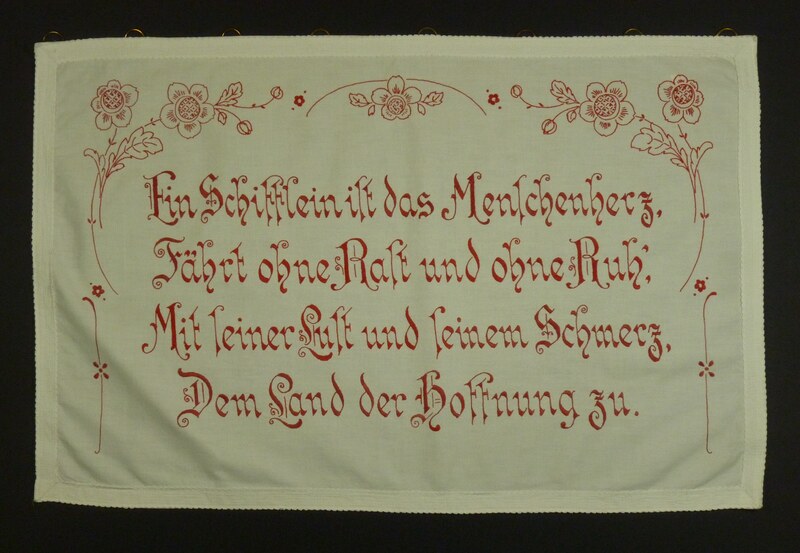 Ein Schifflein iſt das Menſchenherz,
Fährt ohne Raſt und ohne Ruh',
Mit ſeiner Luſt und ſeinem Schmerz,
Dem Land der Hoffnung zu.